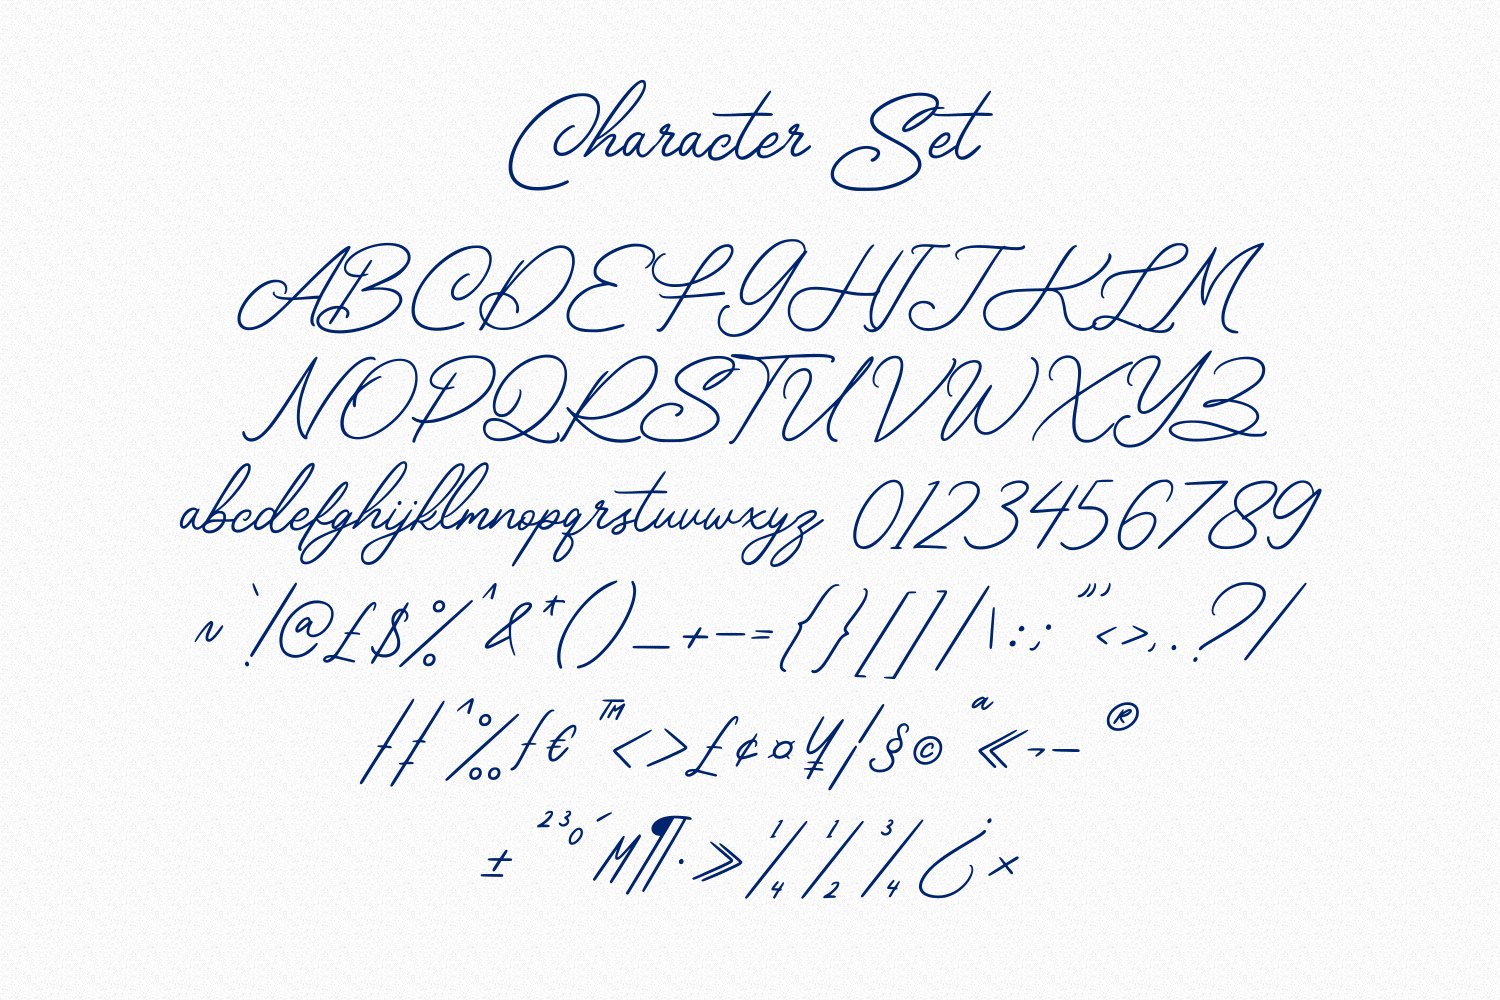 Character Set
ABCDEFGHIJKLM
NOPQRSTUVWXYZ
abcdefghijklmnopqrstuvwxyz 0123456789
~`!@£$%^&*()_+-={}[]/|\:;"'<>,.?/
†‡^‰ƒ€™<>£¢¤¥¦§©ª«¬-®
±²³°´M¶·»¼½¾¿×